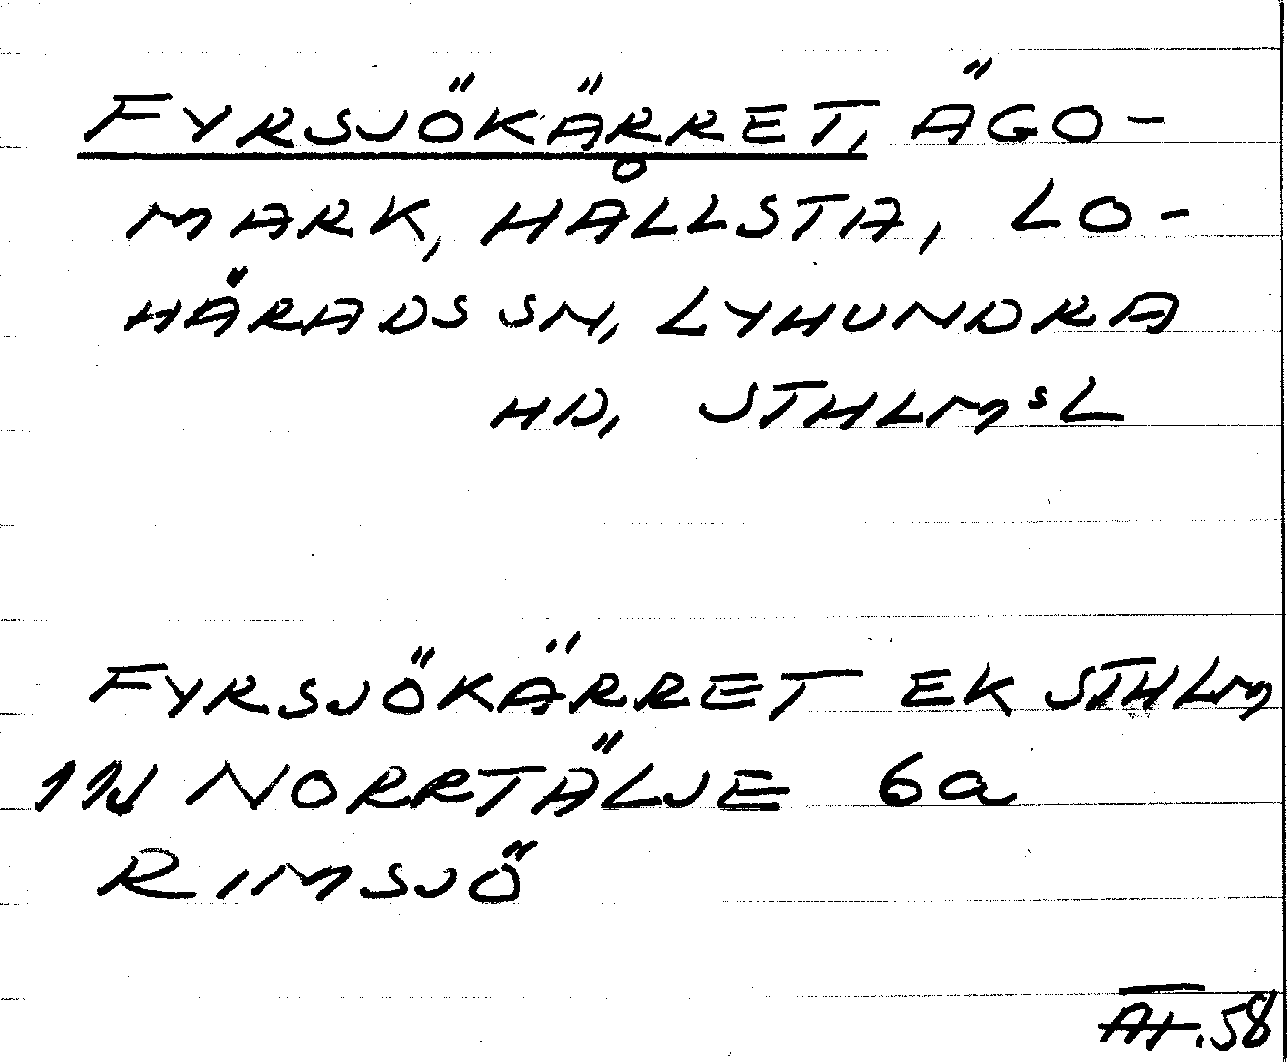 FYRSJÖKÄRRET, ÄGO-
MARK, HÅLLSTA, LO-
HÄRADS SN, LYHUNDRA
HD, STHLMSL
FYRSJÖKÄRRET EK STHLM
11J NORRTÄLJE 6a
RIMSJÖ
AT.58